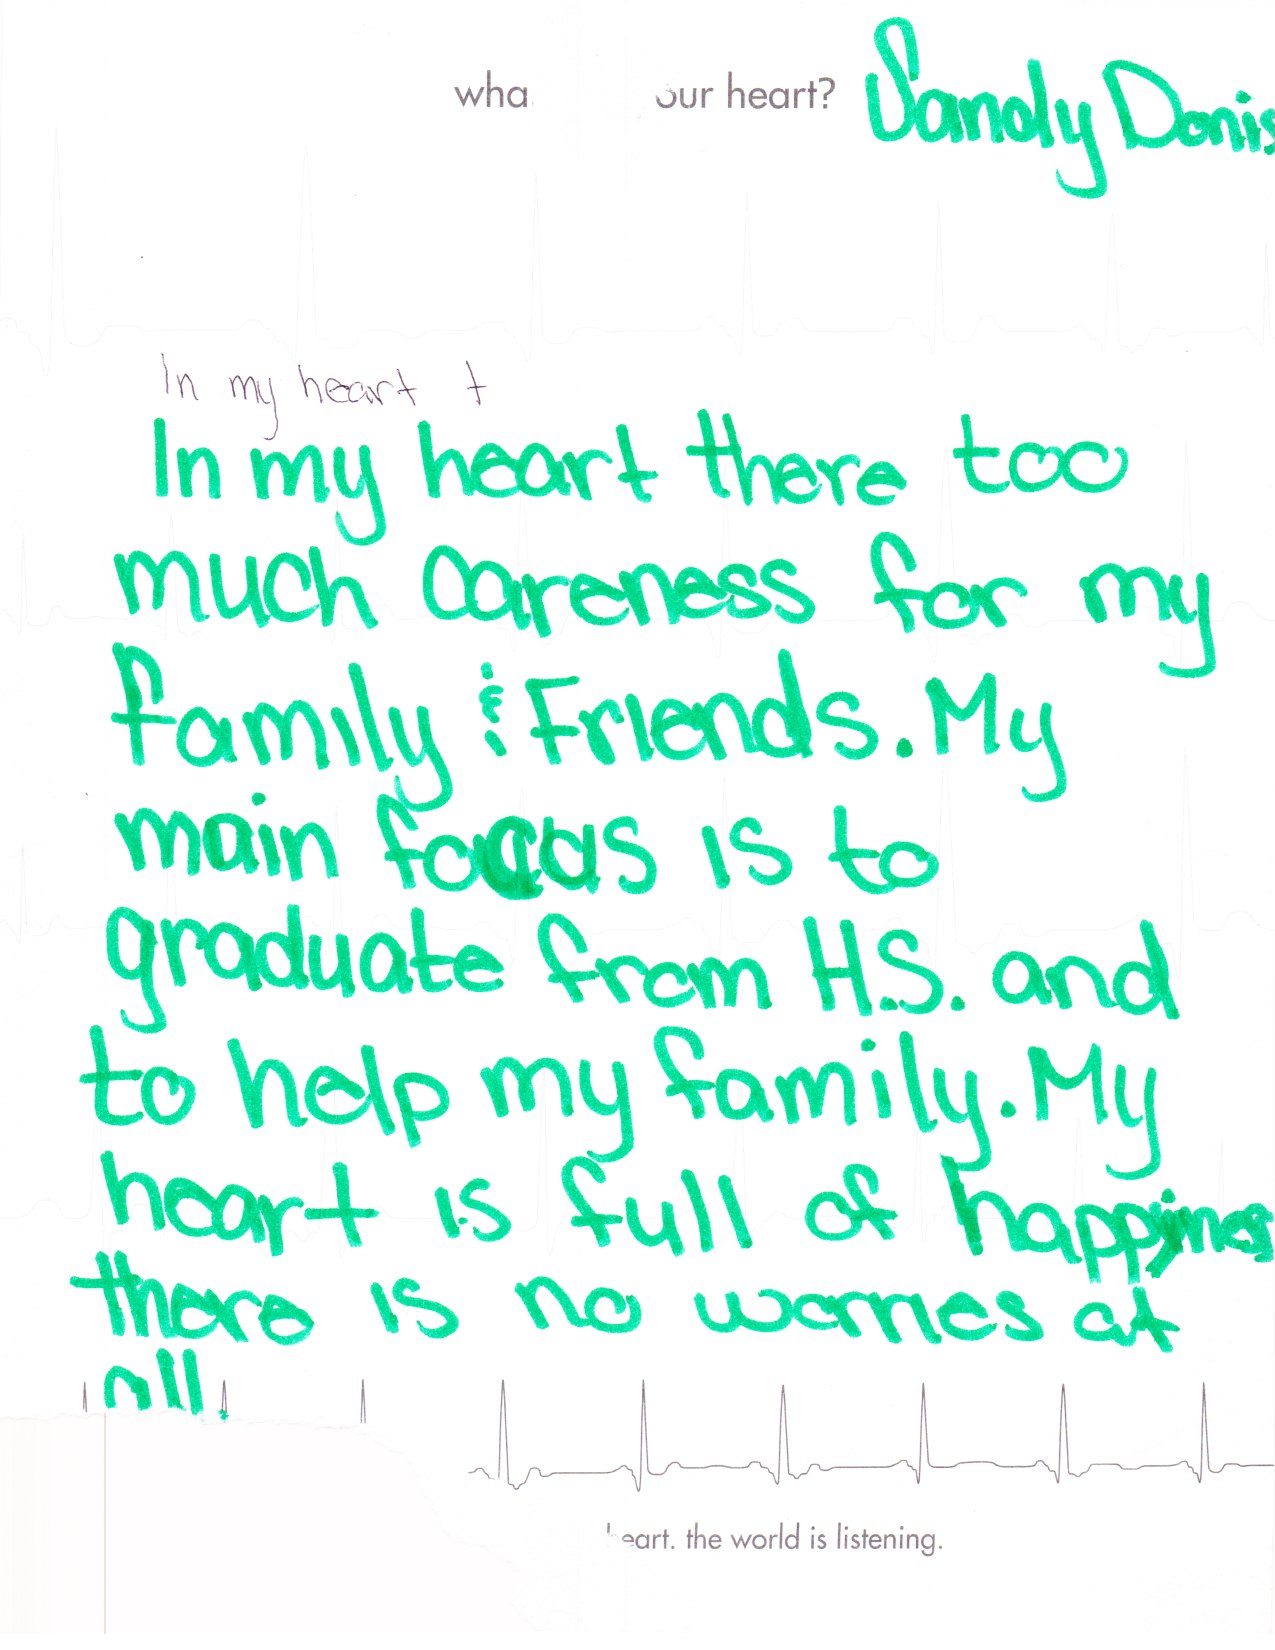 wha our heart?
Sandy Donis
In my heart t
In my heart there too
much careness for my
family & Friends. My
main focus is to
graduate from H.S. and
to help my family. My
heart is full of happines
there is no worries at
all.
heart. the world is listening.